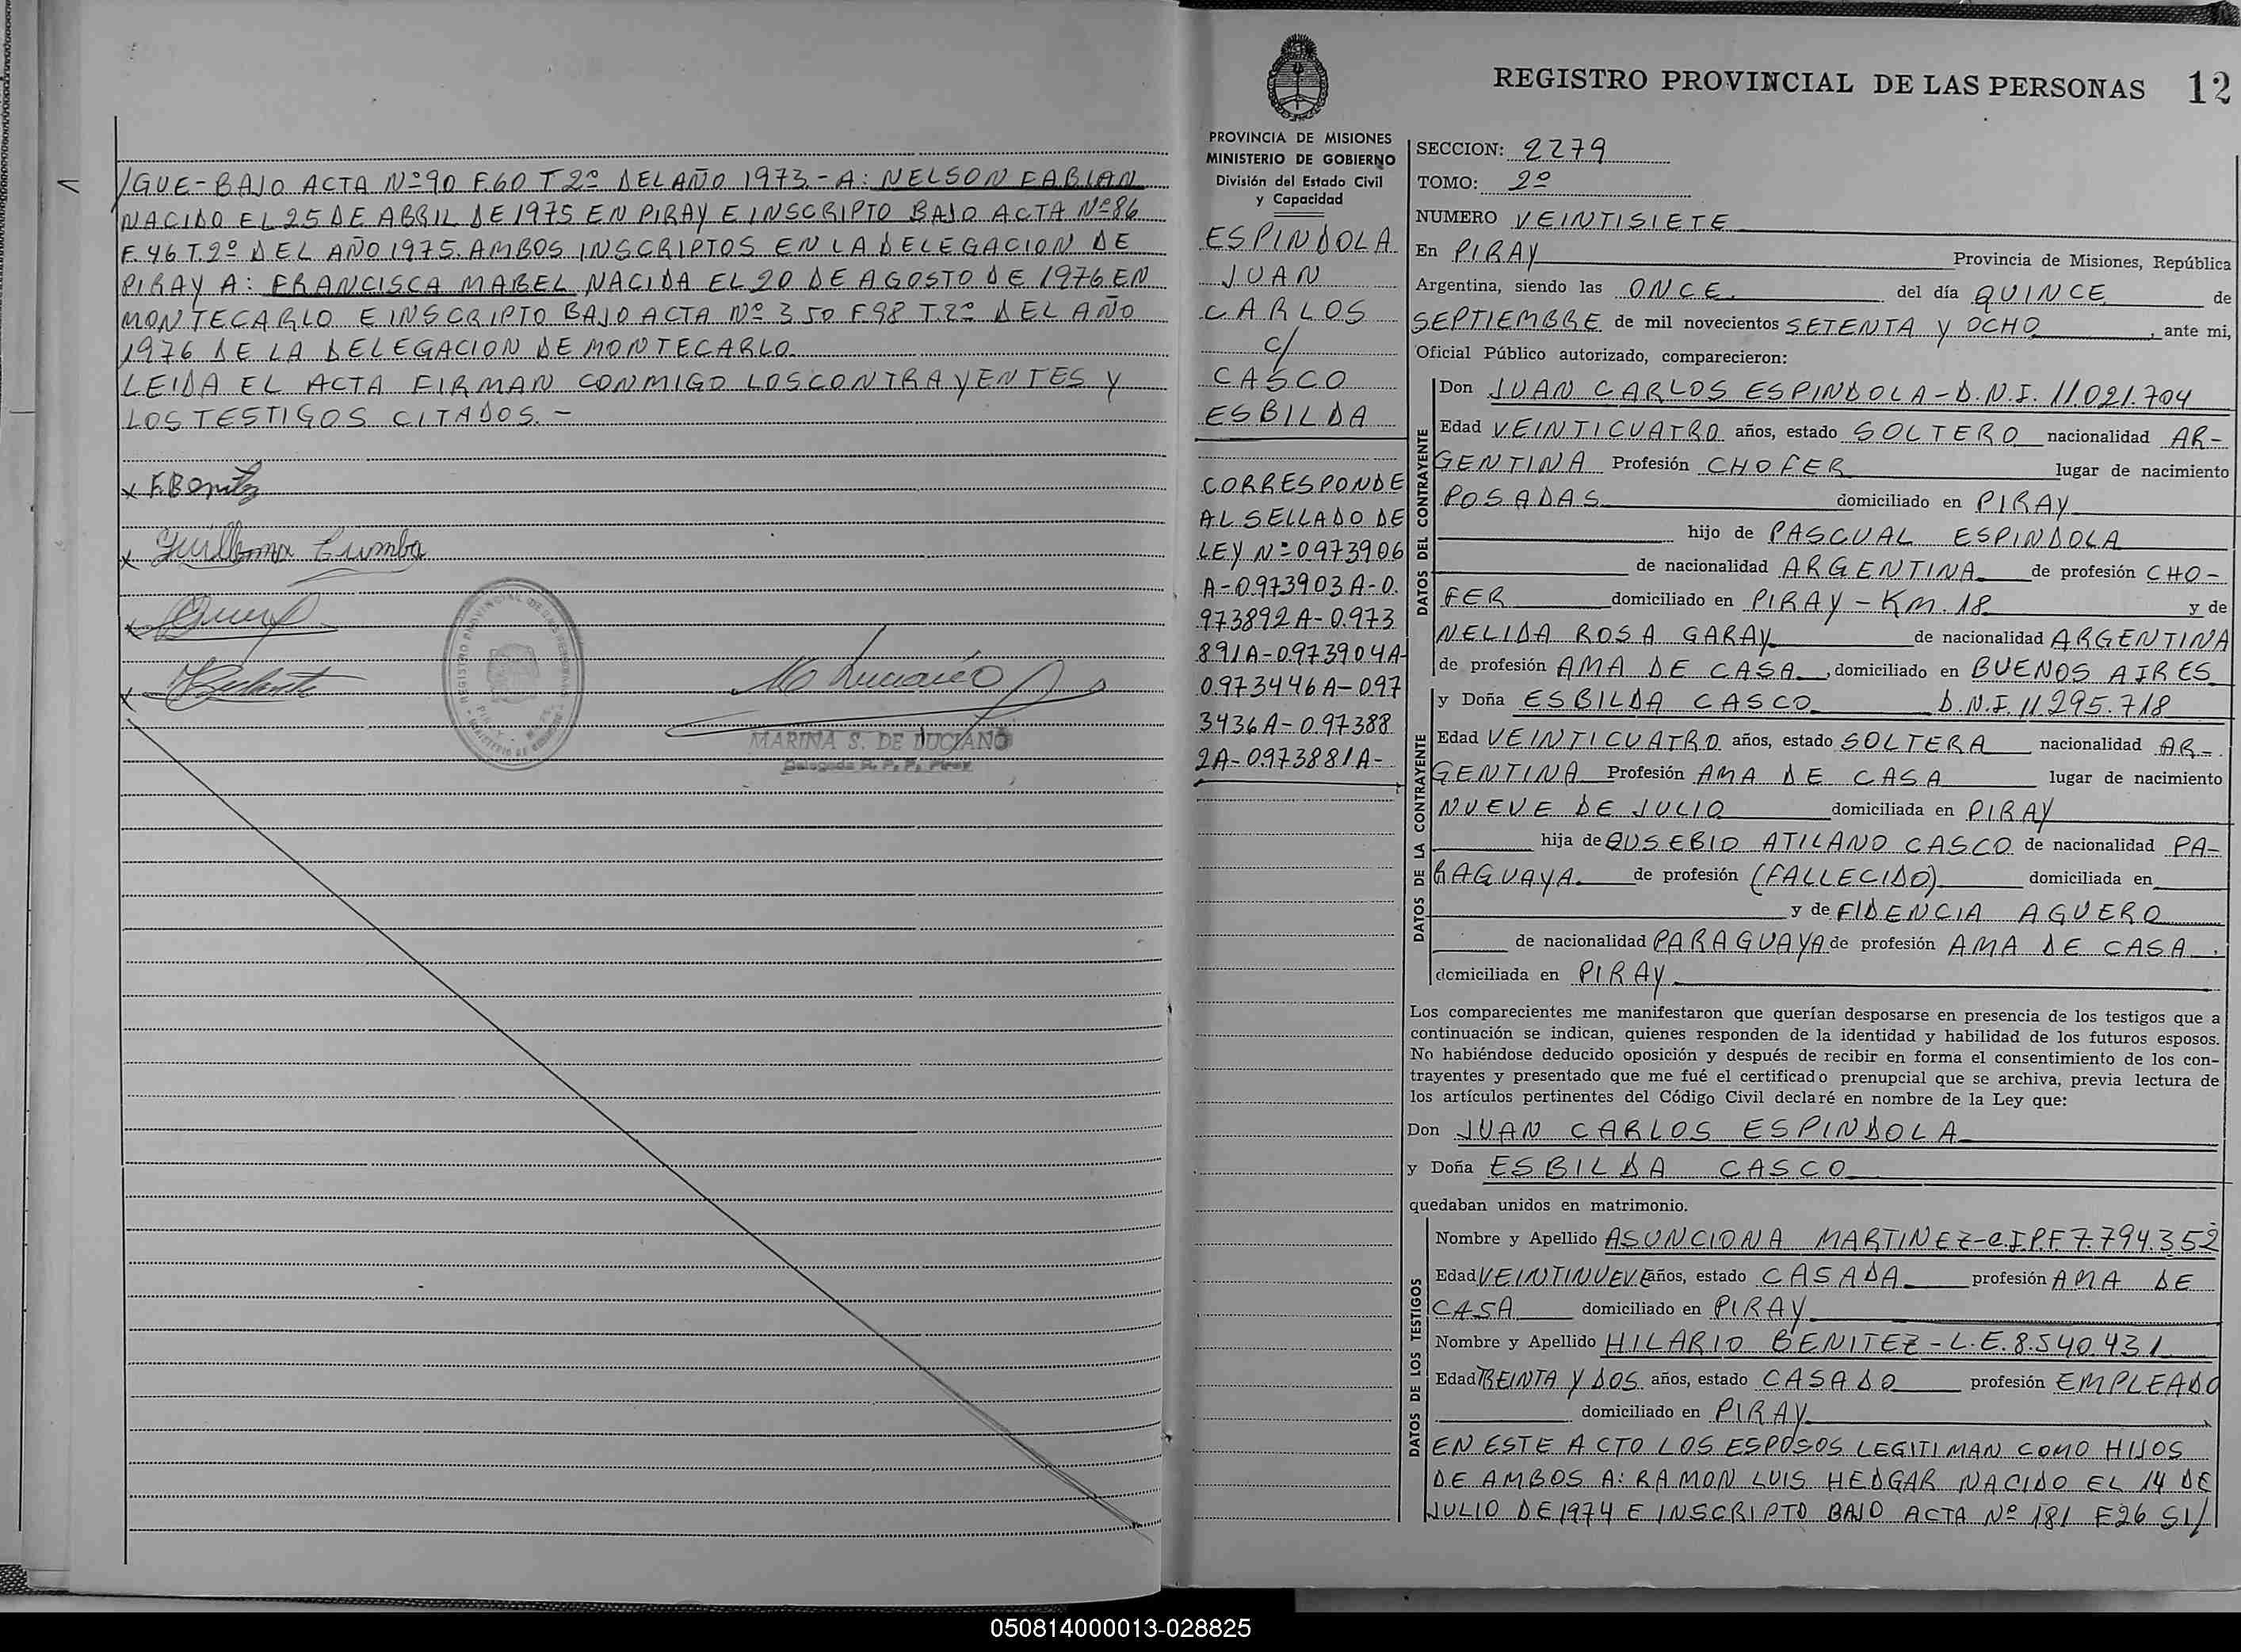 /GUE-BAJO ACTA Nº 90 F.60 T 2º DEL AÑO 1973.- A: NELSON FABIAN
NACIDO EL 25 DE ABRIL DE 1975 EN PIRAY E INSCRIPTO BAJO ACTA Nº 86
F.46 T.2º DEL AÑO 1975. AMBOS INSCRIPTOS EN LA DELEGACION DE
PIRAY A: FRANCISCA MABEL NACIDA EL 20 DE AGOSTO DE 1976 EN
MONTECARLO E INSCRIPTO BAJO ACTA Nº 350 F 98 T.2º DEL AÑO
1976 DE LA DELEGACION DE MONTECARLO.
LEIDA EL ACTA FIRMAN CONMIGO LOS CONTRAYENTES Y
LOS TESTIGOS CITADOS.-
x F. Benitz
x
x
x
MARINA S. DE LUCIANO
Delegada R. P. P. Piray
REGISTRO PROVINCIAL DE LAS PERSONAS 12
PROVINCIA DE MISIONES
MINISTERIO DE GOBIERNO
División del Estado Civil
y Capacidad
ESPINDOLA
JUAN
CARLOS
c/
CASCO
ESBILDA
CORRESPONDE
AL SELLADO DE
LEY Nº 0973906
A-0973903 A-0.
973892 A-0.973
891A-0973904A-
0.973446 A-097
3436A-0.97388
2A-0973881A-
SECCION: 2279
TOMO: 2º
NUMERO VEINTISIETE
En PIRAY Provincia de Misiones, República
Argentina, siendo las ONCE. del día QUINCE de
SEPTIEMBRE de mil novecientos SETENTA Y OCHO, ante mi,
Oficial Público autorizado, comparecieron:
DATOS DEL CONTRAYENTE
Don JUAN CARLOS ESPINDOLA-D.N.I. 11.021.704
Edad VEINTICUATRO años, estado SOLTERO nacionalidad AR-
GENTINA Profesión CHOFER lugar de nacimiento
POSADAS domiciliado en PIRAY
hijo de PASCUAL ESPINDOLA
de nacionalidad ARGENTINA de profesión CHO-
FER domiciliado en PIRAY - KM. 18 y de
NELIDA ROSA GARAY de nacionalidad ARGENTINA
de profesión AMA DE CASA, domiciliado en BUENOS AIRES
DATOS DE LA CONTRAYENTE
y Doña ESBILDA CASCO D.N.I. 11.295.718
Edad VEINTICUATRO años, estado SOLTERA nacionalidad AR-
GENTINA Profesión AMA DE CASA lugar de nacimiento
NUEVE DE JULIO domiciliada en PIRAY
hija de EUSEBIO ATILANO CASCO de nacionalidad PA-
RAGUAYA. de profesión (FALLECIDO) domiciliada en
y de FIDENCIA AGUERO
de nacionalidad PARAGUAYA de profesión AMA DE CASA,
domiciliada en PIRAY
Los comparecientes me manifestaron que querían desposarse en presencia de los testigos que a
continuación se indican, quienes responden de la identidad y habilidad de los futuros esposos.
No habiéndose deducido oposición y después de recibir en forma el consentimiento de los con-
trayentes y presentado que me fué el certificado prenupcial que se archiva, previa lectura de
los artículos pertinentes del Código Civil declaré en nombre de la Ley que:
Don JUAN CARLOS ESPINDOLA
y Doña ESBILDA CASCO
quedaban unidos en matrimonio.
DATOS DE LOS TESTIGOS
Nombre y Apellido ASUNCIONA MARTINEZ-C.I.P.F 7.794.352
Edad VEINTINUEVE años, estado CASADA profesión AMA DE
CASA domiciliado en PIRAY
Nombre y Apellido HILARIO BENITEZ - L.E. 8.540.431
Edad TREINTA Y DOS años, estado CASADO profesión EMPLEADO
domiciliado en PIRAY
EN ESTE ACTO LOS ESPOSOS LEGITIMAN COMO HIJOS
DE AMBOS A: RAMON LUIS HEDGAR NACIDO EL 14 DE
JULIO DE 1974 E INSCRIPTO BAJO ACTA Nº 181 F26 SI/
050814000013-028825